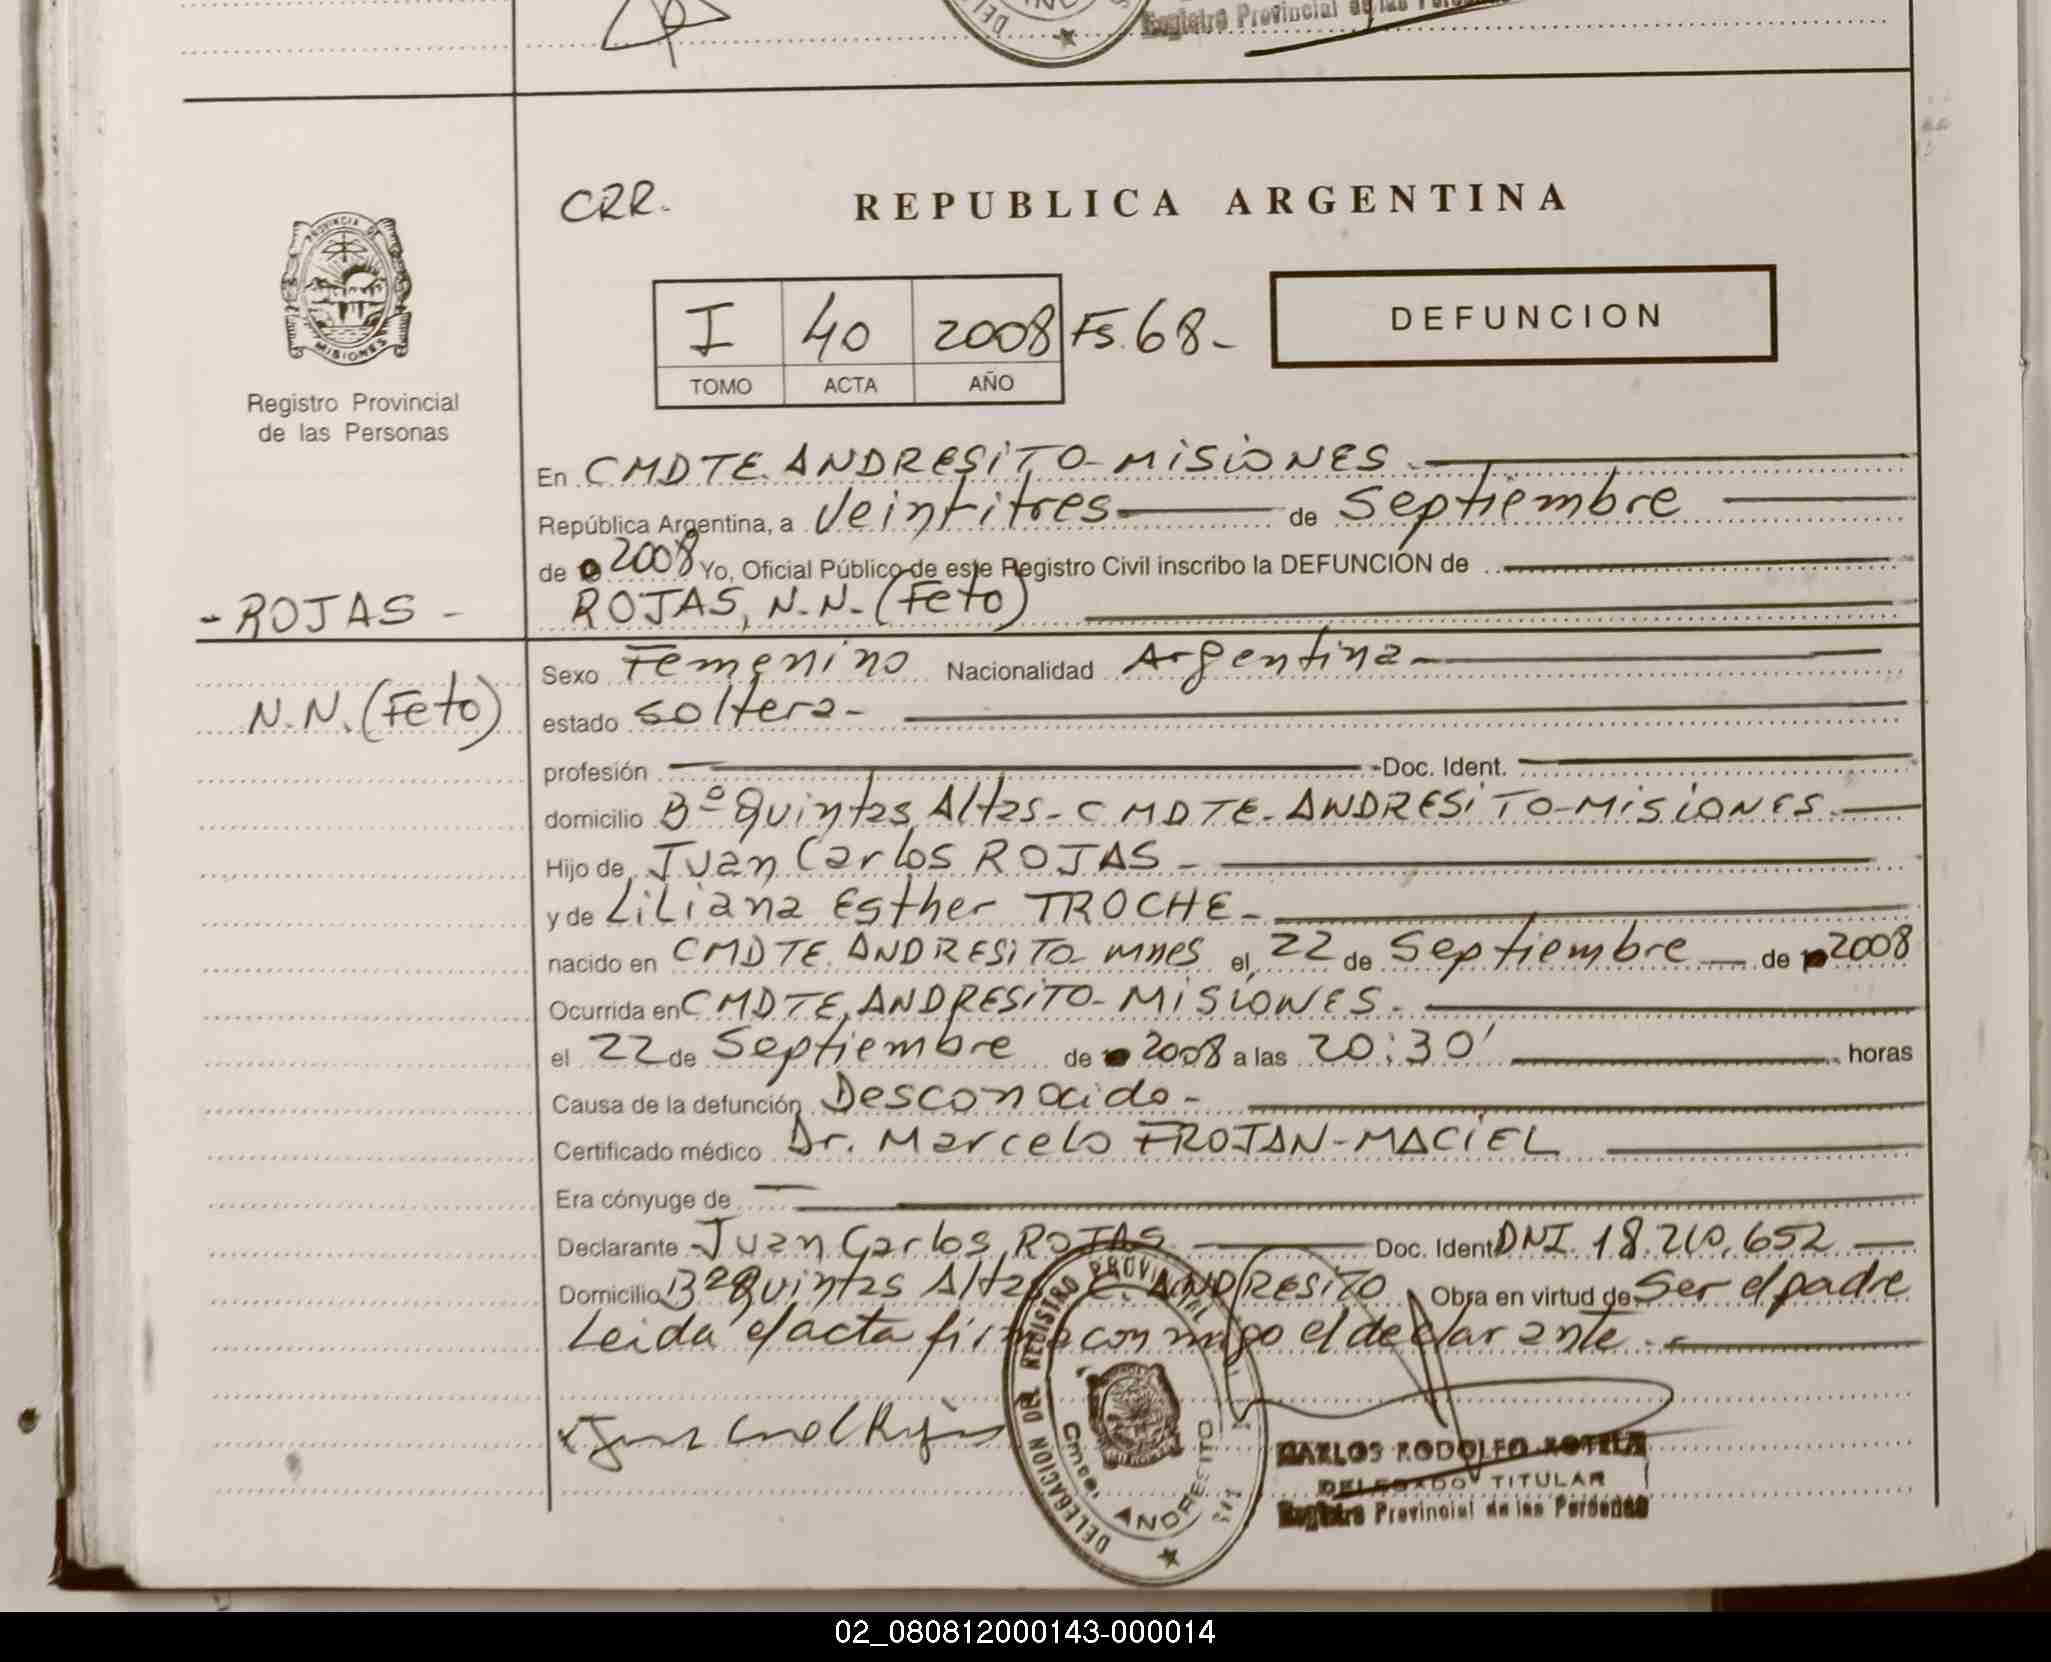 Registro Provincial de las
CRR.
REPUBLICA ARGENTINA
PROVINCIA DE
MISIONES
I 40 2008 Fs. 68-
TOMO ACTA AÑO
DEFUNCION
Registro Provincial
de las Personas
En CMDTE. ANDRESITO-MISIONES.
República Argentina, a Veintitres de Septiembre
de 2008 Yo, Oficial Público de este Registro Civil inscribo la DEFUNCIÓN de
- ROJAS -
ROJAS, N.N. (Feto)
N.N. (Feto)
Sexo Femenino Nacionalidad Argentina
estado soltera-
profesión Doc. Ident.
domicilio Bº Quintas Altas-CMDTE-ANDRESITO-MISIONES.
Hijo de Juan Carlos ROJAS-
y de Liliana Esther TROCHE-
nacido en CMDTE. ANDRESITO-Mnes el 22 de Septiembre de 2008
Ocurrida en CMDTE. ANDRESITO-MISIONES.
el 22 de Septiembre de 2008 a las 20:30' horas
Causa de la defunción Desconocido-
Certificado médico Dr. Marcelo FROJAN-MACIEL
Era cónyuge de
Declarante Juan Carlos ROJAS Doc. Ident DNI. 18.210.652
Domicilio Bº Quintas Altas C. ANDRESITO Obra en virtud de Ser el padre
Leida el acta firma conmigo el declarante.
DELEGACION DEL REGISTRO PROVINCIAL
Cmte. ANDRESITO
CARLOS RODOLFO KOTELA
DELEGADO TITULAR
Registro Provincial de las Personas
02_080812000143-000014